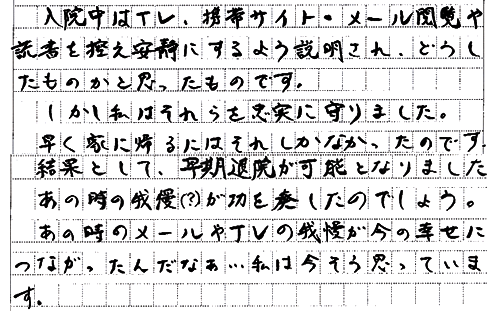 入院中はTV、携帯サイト・メール閲覧や
読書を控え安静にするよう説明され、どうし
たものかと思ったものです。
しかし私はそれらを忠実に守りました。
早く家に帰るにはそれしかなかったのです。
結果として、早期退院が可能となりました
あの時の我慢(?)が功を奏したのでしょう。
あの時のメールやTVの我慢が今の幸せに
つながったんだなぁ…私は今そう思っていま
す。